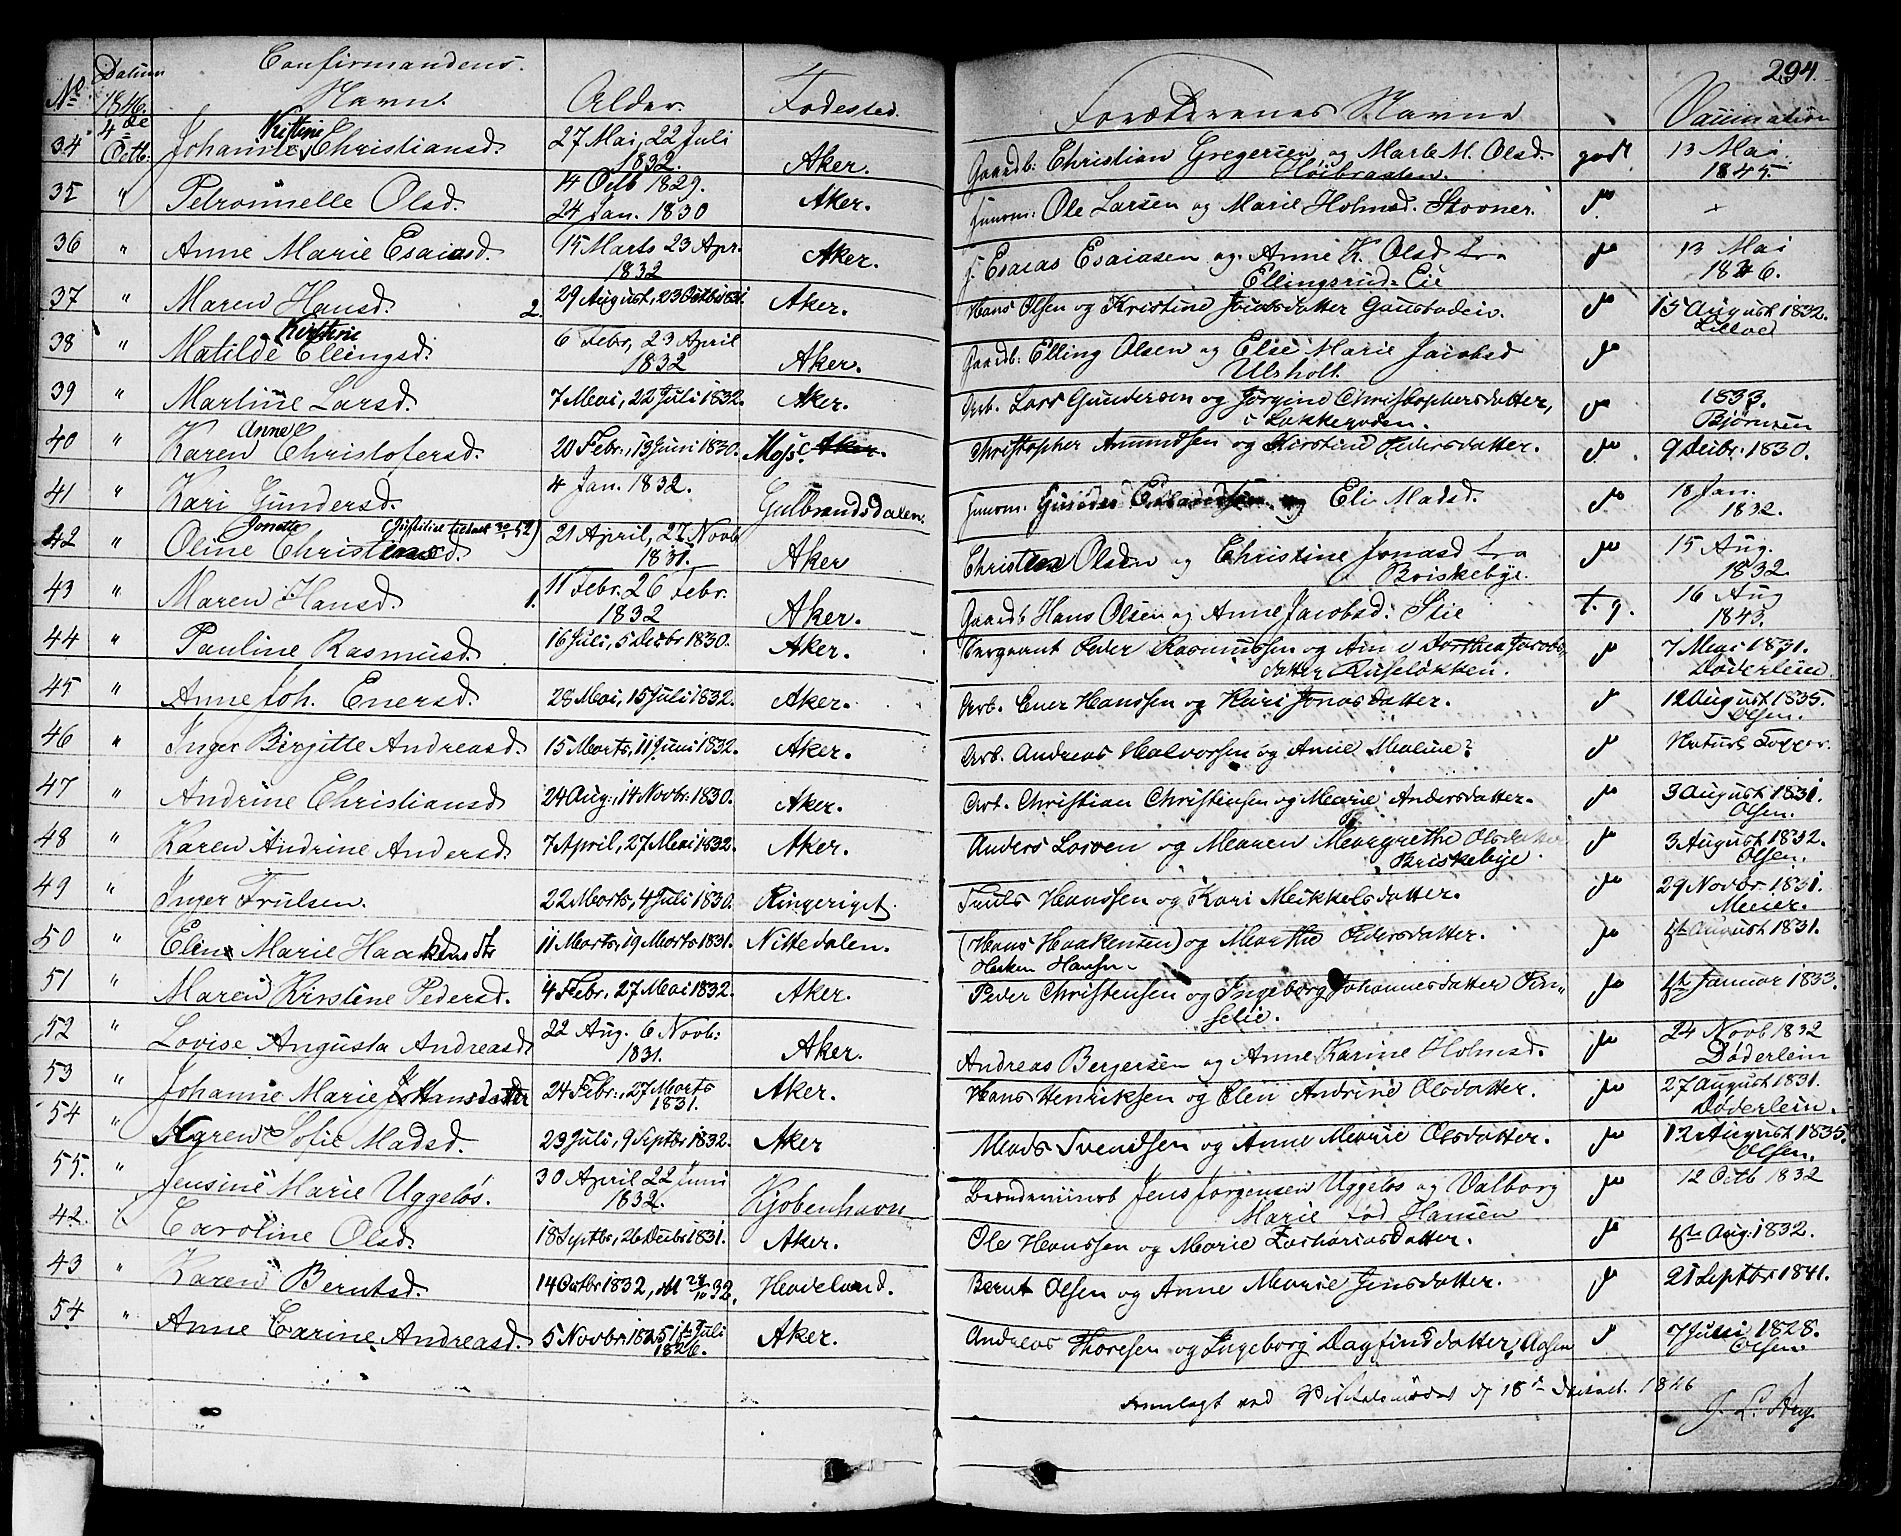 294
No Datum 1846. Confirmandens Navn. Alder. Fødested. Forældrenes Navne Vaccination
34 4de Octb. Johanne Kristine Christiansd. 27 Mai, 22 Juli 1832. Aker. Gaardb. Christian Gregersen og Marte M. Olsd. Høibraaten. godt 13 Mai 1845.
35 " Petronnelle Olsd. 14 Octb 1829. 24 Jan. 1830 Aker. Ole Larsen og Marie Holmsd. Stovner.
36 " Anne Marie Esaiasd. 15 Marts 23 Apr. 1832 Aker. Esaias Esaiasen og Anne K. Olsd fra Ellingsrud Eie 13 Mai 1846.
37 " Maren Hansd. 2. 29 August, 23 Octbr 1831 Aker. Hans Olsen og Kristine Jonsdatter Gaustadeie. 15 August 1832.
38 " Matilde Kirstine Ellingsd. 6 Febr, 23 April 1832 Aker. Gaardb: Elling Olsen og Else Marie Jacobsd Ulsholt.
39 " Martine Larsd. 7 Mai, 22 Juli 1832. Aker. Arb. Lars Gundersen og Jørgine Christophersdatter, i Løkkeroden. 1833. Bjørnsen
40 " Karen Anne Christofersd. 20 Febr., 13 Juni 1830. Moss. Aker. Christopher Amundsen og Kirstine Pedersdatter. 9 Decbr. 1830.
41 " Kari Gundersd. 4 Jan. 1832. Gulbrandsdalen. Gunder og Eli Madsd. 18 Jan. 1832.
42 " Oline Jonette Christensd. 21 April, 27 Novb 1831. Aker Christen Olsen og Christine Jonasd fra Briskebye. 15 Aug. 1832.
43 " Maren Hansd. 1. 11 Febr. 26 Febr. 1832 Aker. Gaardb Hans Olsen og Anne Jacobsd: Stie T. g. 16 Aug 1843.
44 " Pauline Rasmusd. 16 Juli, 5 Decbr 1830. Aker. Sergeant Peder Rasmussen og Anne Dorthea Jacobsdatter Ruseløkken. 7 Mai 1831. Døderlein
45 " Anne Joh. Enersd. 28 Mai, 15 Juli 1832. Aker. Arb. Ener Hanssen og Kari Jonasdatter. 12 August 1835. Olsen.
46 " Inger Birgitte Andreasd. 15 Marts, 11 Juni 1832. Aker. Arb. Andreas Halvorsen og Anne Malene? Naturl. Kopper.
47 " Andrine Christiansd 24 Aug., 14 Novbr. 1830. Aker. Arb. Christian Christensen og Marie Andersdatter. 3 August 1831. Olsen.
48 " Karen Andrine Andersd. 7 April, 27 Mai 1832. Aker. Anders Larsen og Maren Margrethe Olsdatter Briskebye. 3 August 1832. Olsen.
49 " Inger Trulsen. 22 Marts, 4 Juli 1830. Ringeriget. Truls Hanssen og Kari Mikkelsdatter. 29 Novbr. 1831. Meier.
50 " Eline Marie Haakensdtr 11 Marts, 19 Marts 1831. Nittedalen. (Hans Haakensen) og Marthe Pedersdatter. Haken Hansen. August 1831.
51 " Maren Kirstine Pedersd. 4 Febr. 27 Mai 1832. Aker. Peder Christensen og Ingeborg Johannesdatter Januar 1833.
52 " Lovise Augusta Andreasd. 22 Aug. 6 Novb: 1831. Aker. Andreas Bergersen og Anne Karine Holmsd. 24 Novb 1832 Døderlein
53 " Johanne Marie Hansdatter 24 Febr., 27 Marts 1831. Aker. Hans Henriksen og Elen Andrine Olsdatter. 27 August 1831. Døderlein.
54 " Karen Sofie Madsd. 23 Juli, 9 Septbr 1832. Aker Mads Svendsen og Anne Marie Olsdatter. 12 August 1835. Olsen.
55. " Jensine Marie Uggeløs. 30 April 22 Juni 1832. Kjøbenhavn Jens Jørgensen Uggeløs og Valborg Marie fød Hansen 12 Octb 1832
42. " Caroline Olsd. 18 Septbr, 26 Decbr 1831. Aker. Ole Hanssen og Marie Zachariasdatter. Aug. 1832.
43 " Karen Berntsd. 14 Octbr 1832, 32. Hadeland. Bernt Olsen og Anne Marie Jensdatter. 21 Septbr 1841.
54 " Anne Carine Andreasd. 5 Novbr. 1825 Juli 1826. Aker. Andreas Thoresen og Ingeborg Dagfinsdatter, 7 Juli 1828. Olsen
Fremlagt ved 18de 1846